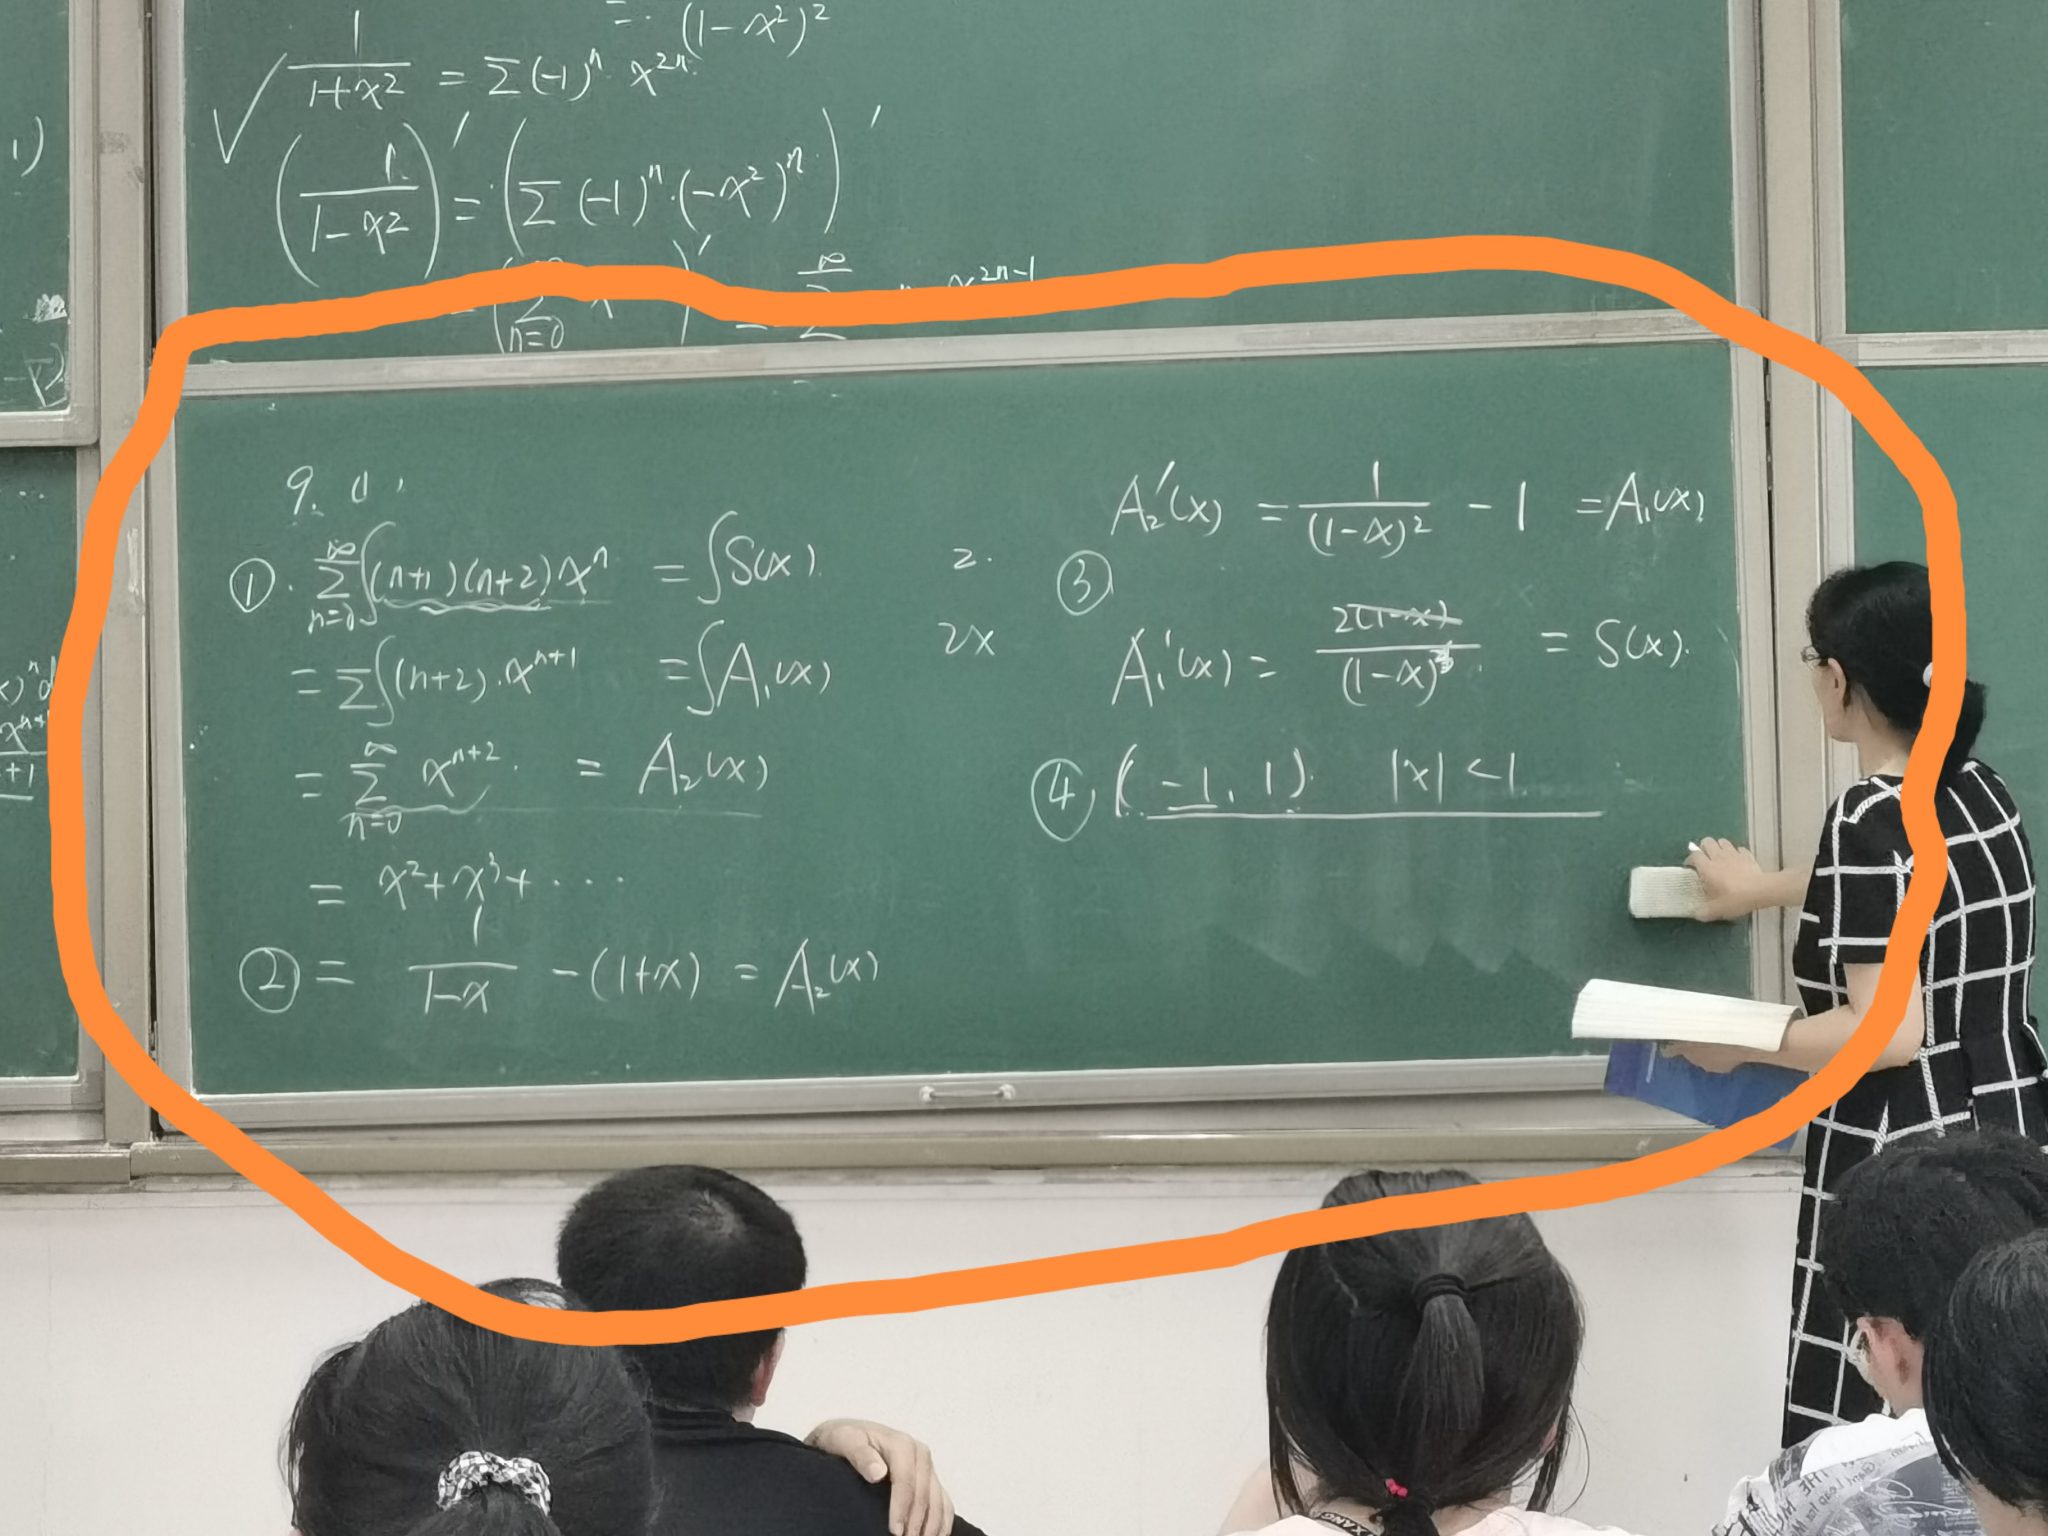 = (1-x²)²
√ 1/(1+x²) = Σ(-1)ⁿ x²ⁿ
(1/(1-x²))′ = (Σ (-1)ⁿ·(-x²)ⁿ)′
9. (1)
① Σ_{n=0}^{∞} ∫(n+1)(n+2)xⁿ = ∫S(x)
= Σ∫(n+2)·xⁿ⁺¹ = ∫A₁(x)
= Σ_{n=0}^{∞} xⁿ⁺² = A₂(x)
= x²+x³+···
② = 1/(1-x) -(1+x) = A₂(x)
2.
2x
A₂′(x) = 1/(1-x)² - 1 = A₁(x)
③
A₁′(x) = 2(1-x)/(1-x)³ = S(x).
④ (-1, 1) |x|<1